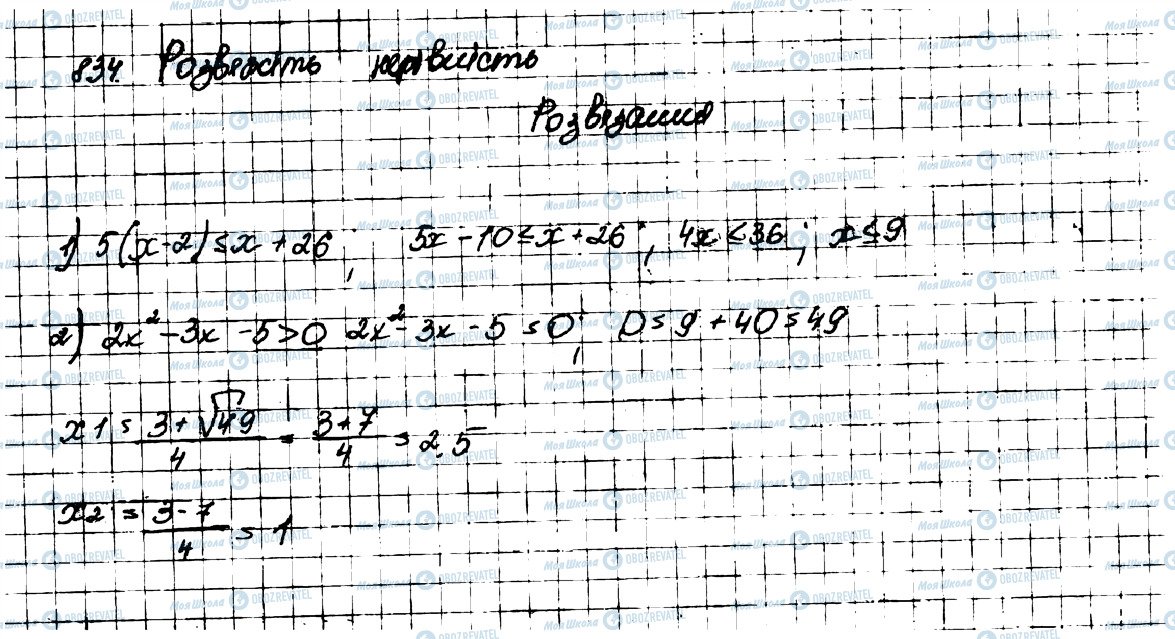 834. Розвяжіть нерівність
Розвязання
1) 5(x-2) ≤ x + 26 ; 5x - 10 ≤ x + 26 ; 4x ≤ 36 ; x ≤ 9
2) 2x² - 3x - 5 > 0 2x² - 3x - 5 = 0 ; D = 9 + 40 = 49
x1 = (3 + √49)/4 = (3+7)/4 = 2,5
x2 = (3-7)/4 = 1